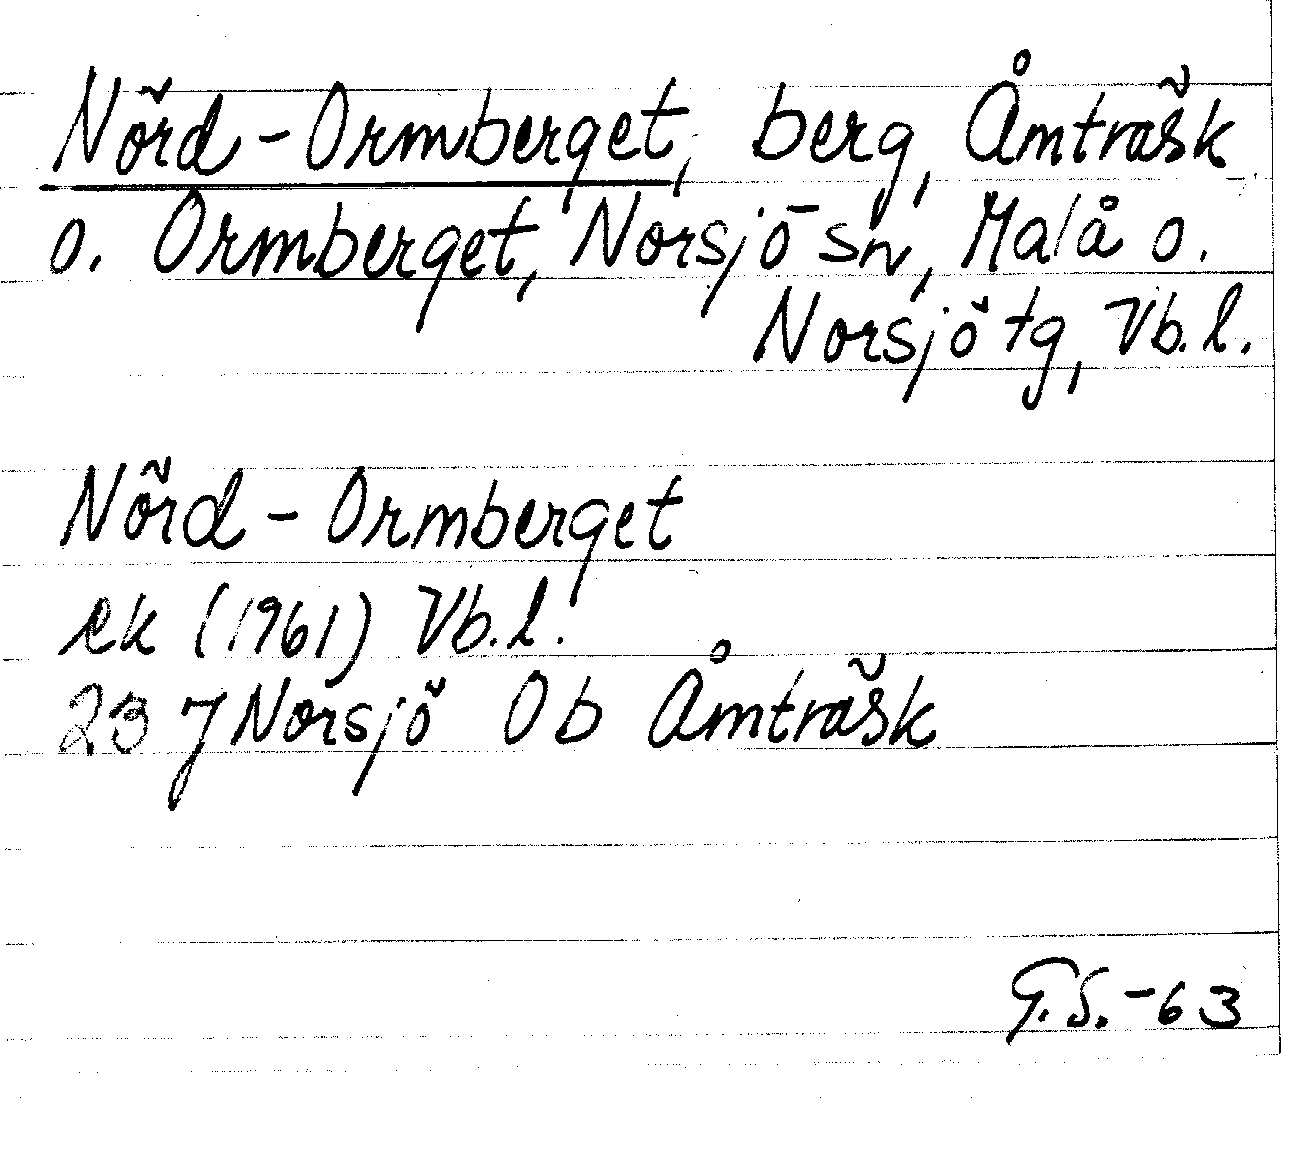 Nörd-Ormberget, berg, Åmträsk
o. Ormberget, Norsjö sn, Malå o.
Norsjö tg, Vb.l.
Nörd-Ormberget
ek (1961) Vb.l.
23 J Norsjö 0b Åmträsk
G.S.-63